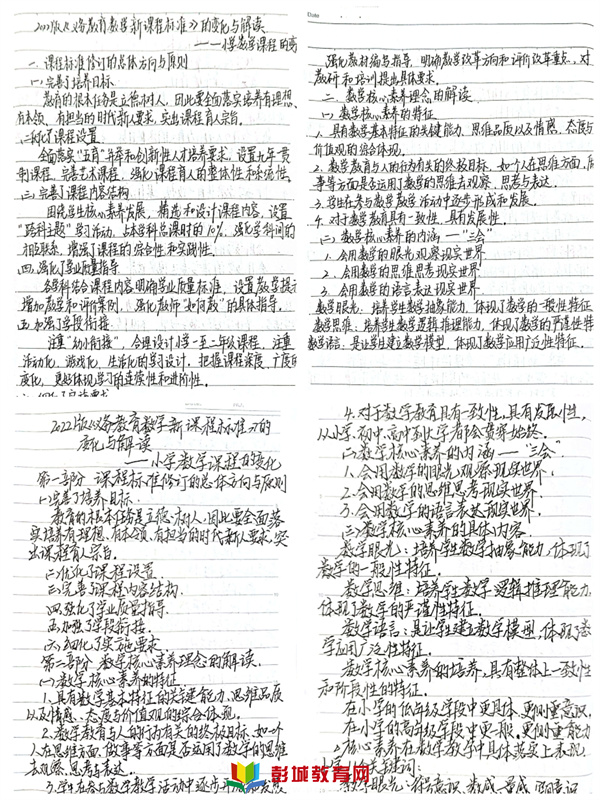 2022版《义务教育数学新课程标准》的变化与解读
——小学数学课程的变
一、课程标准修订的总体方向与原则
(一)完善了培养目标
教育的根本任务是立德树人,因此要全面落实培养有理想、
有本领、有担当的时代新人要求,突出课程育人宗旨。
(二)优化了课程设置
全面落实“五育”并举和创新性人才培养要求,设置九年一贯
制课程,完善艺术课程,强化课程育人的整体性和系统性。
(三)完善了课程内容结构
因凭学生核心素养发展,精选和设计课程内容,设置
“跨科主题”学习活动,占本学科总课时的10%,强化学科间的
相互联系,增强了课程的综合性和实践性。
(四)强化了学业质量指导
各学科结合课程内容明确学业质量标准,设置教学提示
增加教学和评价案例,强化教师“如何教”的具体指导。
(五)加强了学段衔接
注重“幼小衔接”,合理设计小学一至二年级课程,注重
活动化、游戏化、生活化的学习设计,把握课程深度、广度的
变化,更好体现学习的连续性和进阶性。
Date
强化教材编写指导,明确教学改革方向和评价改革重点,对
教研和培训提出具体要求。
二、数学核心素养理念的解读
(一)数学核心素养的特征
1. 具有数学基本特征的关键能力、思维品质以及情感、态度与
价值观的综合体现。
2. 数学教育与人的行为有关的终极目标,如个人在思维方面、做
事等方面是否运用了数学的思维去观察、思考与表达。
3. 学生在参与数学教学活动中逐步形成和发展。
4. 对于数学教育具有一致性,具有发展性。
(二)数学核心素养的内涵——“三会”
1. 会用数学的眼光观察现实世界
2. 会用数学的思维思考现实世界
3. 会用数学的语言表达现实世界
数学眼光:培养学生数学抽象能力,体现了数学的一般性特征
数学思维:培养学生数学逻辑推理能力,体现了数学的严谨性特
数学语言:是让学生建立数学模型,体现了数学应用广泛性特征。
2022版《义务教育数学新课程标准》的
变化与解读
——小学数学课程的变化
第一部分 课程标准修订的总体方向与原则
(一)完善了培养目标
教育的根本任务是立德树人,因此要全面落
实培养有理想、有本领、有担当的时代新人要求,突
出课程育人宗旨。
(二)优化了课程设置
(三)完善了课程内容结构
(四)强化了学业质量指导
(五)加强了学段衔接
(六)细化了实施要求
第二部分 数学核心素养理念的解读
(一)数学核心素养的特征
1. 具有数学基本特征的关键能力、思维品质
以及情感、态度与价值观的综合体现。
2. 数学教育与人的行为有关的终极目标,如一个
人在思维方面、做事等方面是否运用了数学的思维
去观察、思考与表达。
3. 学生在参与数学教学活动中逐步
4. 对于数学教育具有一致性,具有发展性,
从小学、初中、高中到大学都会贯穿始终。
(二)数学核心素养的内涵——“三会”
1. 会用数学的眼光观察现实世界.
2. 会用数学的思维思考现实世界.
3. 会用数学的语言表达现实世界.
(三)数学核心素养的具体内容
数学眼光:培养学生数学抽象能力,体现了
数学的一般性特征。
数学思维:培养学生数学逻辑推理能力,
体现了数学的严谨性特征。
数学语言:是让学生建立数学模型,体现数
学应用广泛性特征。
数学核心素养的培养,具有整体上一致性
和阶段性的特征。
在小学的低年级学段中更具体,更侧重意识,
在小学的高年级学段中更一般,更侧重能力
2. 核心素养在数学教学中具体落实上表现
彭城教育网